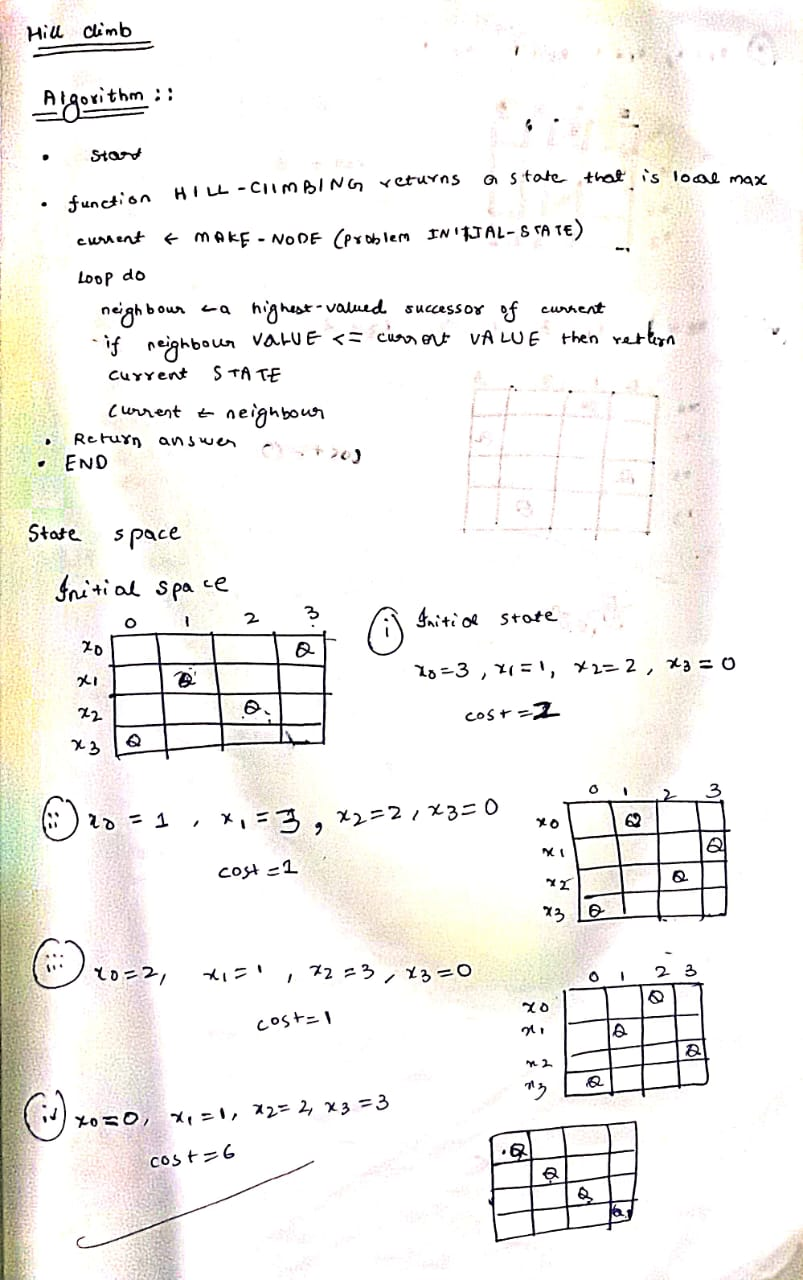 Hill climb
Algorithm ::
• Start
• function HILL-CLIMBING returns a state that is local max
current ← MAKE-NODE (problem INITIAL-STATE)
Loop do
neighbour ←a highest-valued successor of current
if neighbour VALUE <= current VALUE then return
current STATE
current ← neighbour
• Return answer
• END
State space
Initial space
0 1 2 3
x0 Q
x1 Q
x2 Q
x3 Q
(i) Initial state
x0=3, x1=1, x2=2, x3=0
cost=2
(ii) x0=1, x1=3, x2=2, x3=0
cost=1
0 1 2 3
x0 Q
x1 Q
x2 Q
x3 Q
(iii) x0=2, x1=1, x2=3, x3=0
cost=1
0 1 2 3
x0 Q
x1 Q
x2 Q
x3 Q
(iv) x0=0, x1=1, x2=2, x3=3
cost=6
Q
Q
Q
Q